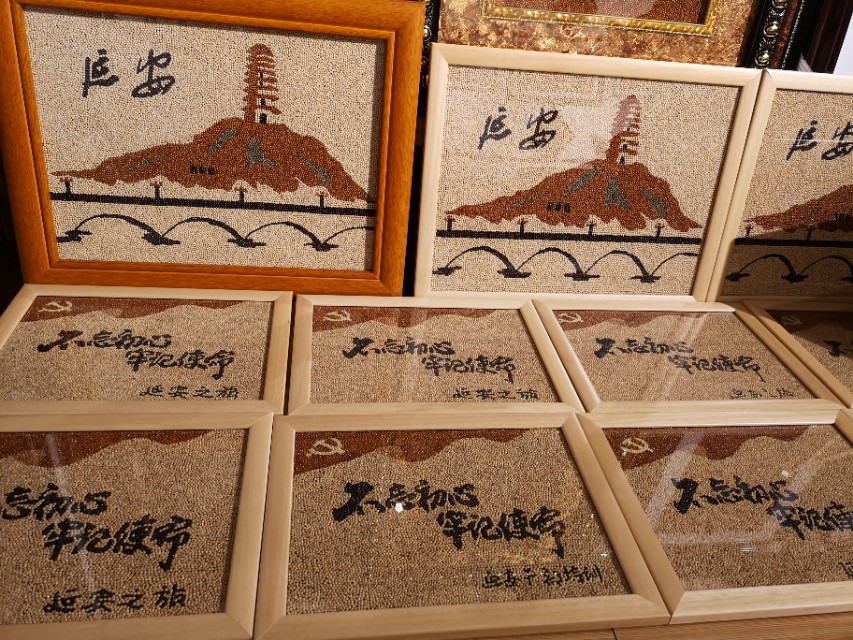 延安
延安
延安
不忘初心
牢记使命
延安之旅
不忘初心
牢记使命
延安之旅
不忘初心
牢记使命
忘初心
牢记使命
延安之旅
不忘初心
牢记使命
延安干部培训
不忘初心
牢记使命